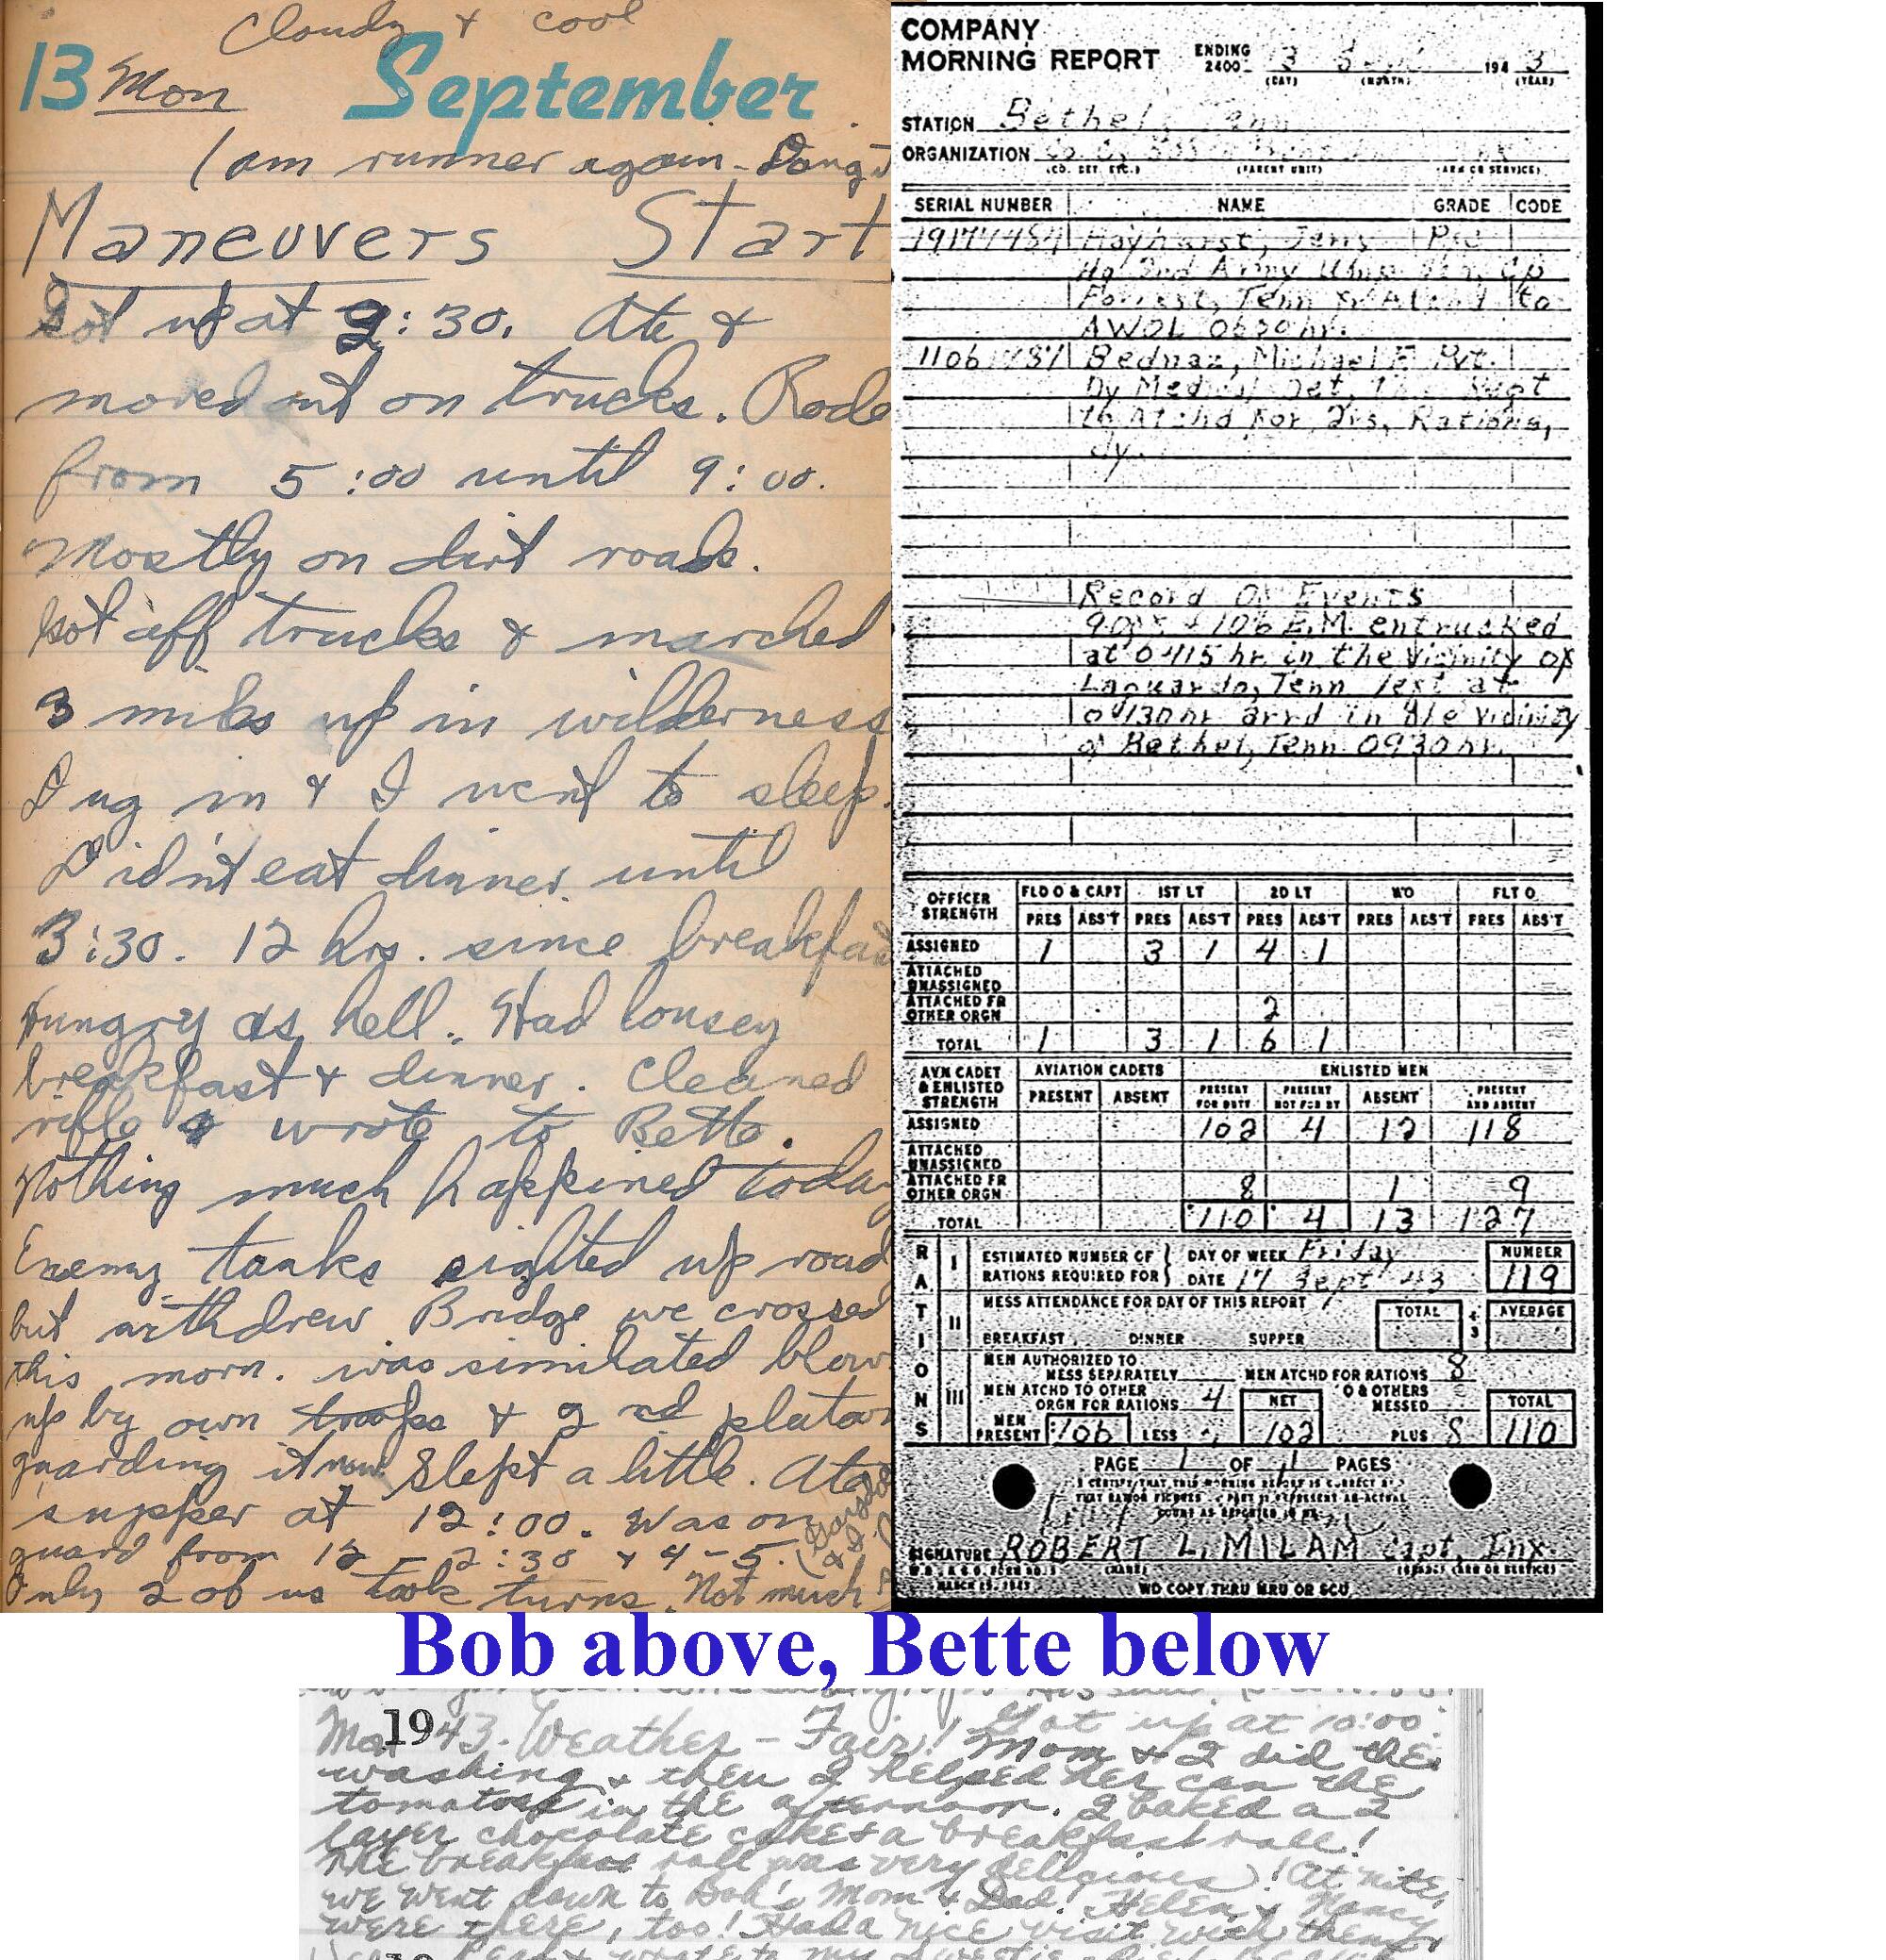 Cloudy & cool
13 Mon September
I am runner again -
Maneuvers Start
Got up at 2:30. Ate &
moved out on trucks. Rode
from 5:00 until 9:00.
Mostly on dirt roads.
Got off trucks & marched
3 miles up in wilderness
Dug in & I went to sleep.
Didn't eat dinner until
3:30. 12 hrs. since breakfast
Hungry as hell. Had lousey
breakfast & dinner. Cleaned
rifle & wrote to Bette.
Nothing much happined today
Enemy tanks sighted up road
but withdrew. Bridge we crossed
this morn. was similated blown
up by own troops & 2nd platoon
guarding it now. Slept a little. Ate
supper at 12:00. Was on
guard from 12 - 2:30 & 4-5.
Only 2 of us took turns. Not much
COMPANY
MORNING REPORT ENDING 2400 3 194 3
(DAY) (MONTH) (YEAR)
STATION Bethel, Tenn
ORGANIZATION
(CO. DET. ETC.) (PARENT UNIT) (ARM OR SERVICE)
SERIAL NUMBER NAME GRADE CODE
Hayhurst, Pvt
Hq 2nd Army
Forrest, Tenn to
AWOL 0630 hr.
Bednaz, Michael F Pvt.
Dy Medical Det, Regt
to Atchd For Qrs, Rations,
dy.
Record Of Events
106 E.M. entrucked
at 0415 hr in the Vicinity of
Laguardo, Tenn left at
0430 hr arrd in the Vicinity
of Bethel, Tenn 0930 hr.
OFFICER STRENGTH FLD O & CAPT 1ST LT 2D LT WO FLT O
PRES ABS'T PRES ABS'T PRES ABS'T PRES ABS'T PRES ABS'T
ASSIGNED 1 3 1 4 1
ATTACHED UNASSIGNED
ATTACHED FR OTHER ORGN 2
TOTAL 1 3 1 6 1
AVN CADET & ENLISTED STRENGTH AVIATION CADETS ENLISTED MEN
PRESENT ABSENT PRESENT FOR DUTY PRESENT NOT FOR DY ABSENT PRESENT AND ABSENT
ASSIGNED 102 4 12 118
ATTACHED UNASSIGNED
ATTACHED FR OTHER ORGN 8 1 9
TOTAL 110 4 13 127
RATIONS
I ESTIMATED NUMBER OF RATIONS REQUIRED FOR DAY OF WEEK Friday NUMBER
DATE 17 Sept 43 119
II MESS ATTENDANCE FOR DAY OF THIS REPORT TOTAL ÷ 3 AVERAGE
BREAKFAST DINNER SUPPER
III MEN AUTHORIZED TO MESS SEPARATELY MEN ATCHD FOR RATIONS 8
MEN ATCHD TO OTHER ORGN FOR RATIONS 4 NET O & OTHERS MESSED TOTAL
MEN PRESENT 106 LESS 102 PLUS 8 110
PAGE 1 OF 1 PAGES
I CERTIFY THAT THIS MORNING REPORT IS CORRECT
SIGNATURE ROBERT L. MILAM Capt, Inf.
(NAME) (GRADE) (ARM OR SERVICE)
MARCH 1943 WD COPY THRU MRU OR SCU
Bob above, Bette below
Mon 1943. Weather - Fair! Got up at 10:00.
Mom & I did the
washing & then I helped her can the
tomatoes in the afternoon. I baked a 2
layer chocolate cake & a breakfast roll!
The breakfast roll was very delicious! At nite,
we went down to Bob's Mom & Dad! Helen & Nancy
were there, too! Had a nice visit with them,